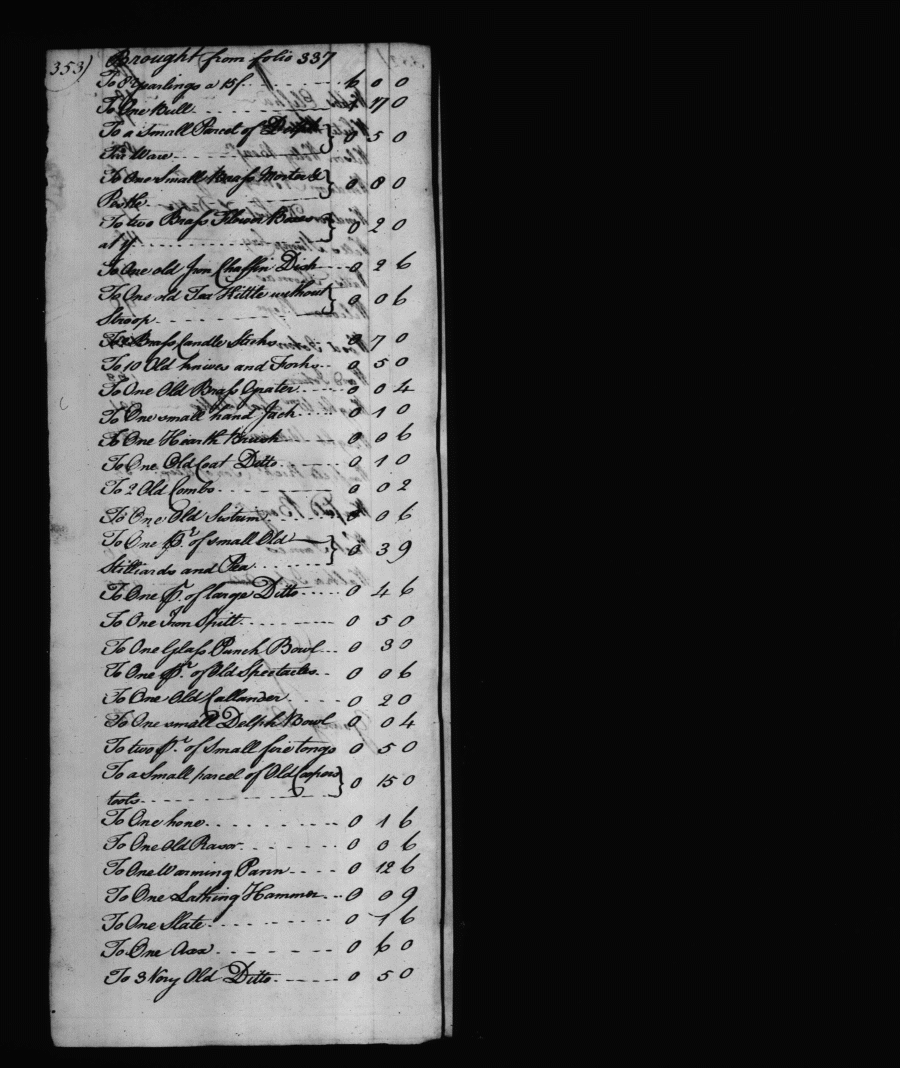 353) Brought from folio 337
To 8 Yearlings a 15/. 6 0 0
To One Bull 1 17 0
To a Small Parcel of Delph & } 0 5 0
Tin Ware
To One Small Brass Morter & } 0 8 0
Pestle
To two Brass Flower Boxes } 0 2 0
at 1/.
To One old Iron Chaffin Dish 0 2 6
To One old Tea Kittle without } 0 0 6
Stroop
Brass Candle Sticks 0 7 0
To 10 Old knives and Forks 0 5 0
To One Old Brass Grater 0 0 4
To One small hand Jack 0 1 0
To One Hearth Brush 0 0 6
To One Old Coat Ditto 0 1 0
To 2 Old Combs 0 0 2
To One Old 0 0 6
To One Pr. of small Old } 0 3 9
Stilliards and Pea
To One Pr. of large Ditto 0 4 6
To One Iron Spitt 0 5 0
To One Glass Punch Bowl 0 3 0
To One Pr. of Old Spectacles 0 0 6
To One Old Callander 0 2 0
To One small Delph Bowl 0 0 4
To two Pr. of Small fire tongs 0 5 0
To a Small parcel of Old Coopers } 0 15 0
tools
To One hone 0 1 6
To One Old Rasor 0 0 6
To One Warming Pann 0 12 6
To One Lathing Hammer 0 0 9
To One Slate 0 1 6
To One Axx 0 6 0
To 3 Very Old Ditto 0 5 0